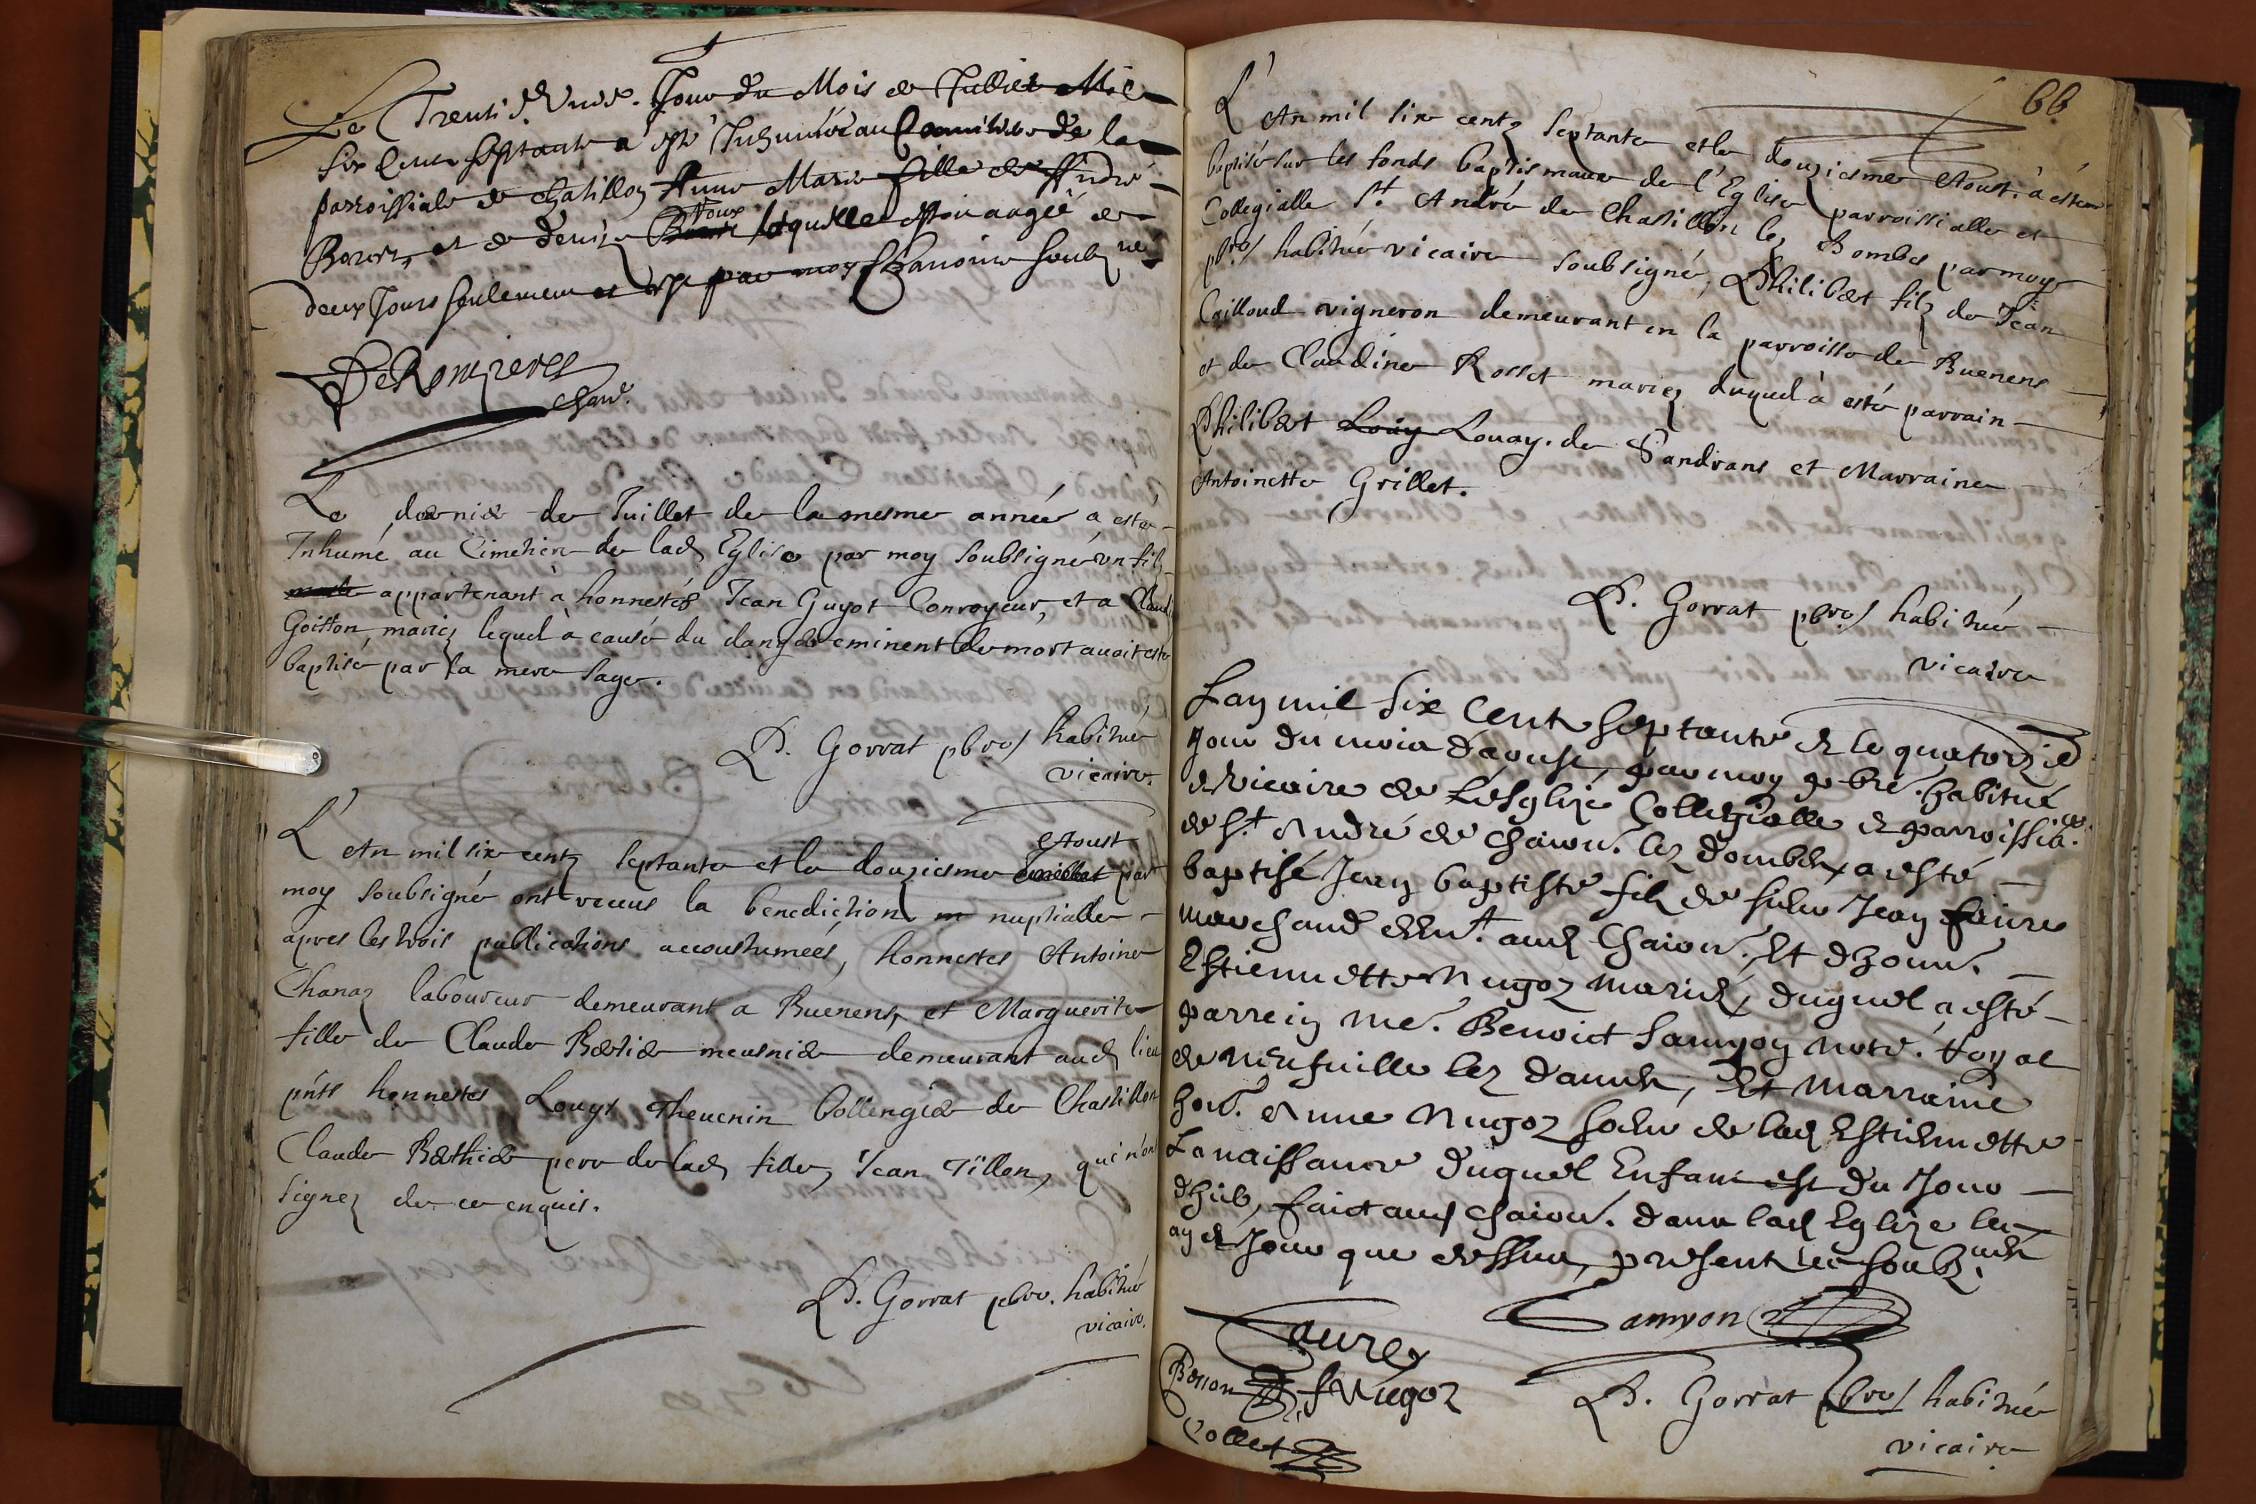 Le Trenti. & Unie. Jour du Mois de Juillet Mil
six Cent septante a esté Inhumée au Cimitiere de la
parroissiale de chatillon Anne Marie fille de André
et de denize Roux laquelle estoit aagée de
deux Jours seulement et ce par moy Chanoine soubz né
DeRomzeres
chan.
Le dernier de Juillet de la mesme année a esté
Inhumé au Cimetiere de lad. Eglise par moy soubsigné un filz
appartenant à honnestes Jean Guyot Conroyeur, et a Claud
Goitton, mariez lequel à cause du danger eminent de mort avoit esté
baptisé par la mere sage.
P. Gorrat pbre/ habitué
vicaire.
L'An mil six centz septante et le douziesme Aoust par
moy soubsigné ont receus la benediction nuptialle
apres les trois publications accoustumeés, honnestes Antoine
Chanaz laboureur demeurant a Buenens, et Marguerite
fille de Claude Bertier meusnier demeurant aud. lieu
pnts honnestes Louys Thevenin bollengier de Chastillon
Claude Berthier pere de lad. fille, Jean Tillon, qui n'on
signez de ce enquis.
P. Gorrat pbre. habitué
vicaire.
66
L'An mil six centz septante et le douziesme Aoust à esté
baptisé sur les fonds baptismaux de l'Eglise parroissialle et
Collegialle St. André de Chastillon lez Dombes par moy
pbre/ habitué vicaire soubsigné, Philibert filz de Jean
Cailloud vigneron demeurant en la parroisse de Buenens
et de Claudine Rosset mariez duquel à esté parrain
Philibert Louy Louay. de Sandrans et Marraine
Antoinette Grillet.
P. Gorrat pbre/ habitué
vicaire
Lan mil six Cent septante & le quatorzie
Jour du mois daoust, par moy pbre. habitué
& vicaire de Lesglize Collegialle & parroissia.lle
de St. André de chaion. lez dombes, a esté
baptisé Jean baptiste filz de sieur Jean faivre
marchand aud. Chaion. Et dhonn.
Estiennette Nugoz mariés, duquel a esté
parrein Me. Benoict Samyon Notre. Royal
de Neufville lez dames, Et Marraine
hon. Anne Nugoz soeur de lad. Estiennette
La naissance duquel Enfant est du Jour
dhier, faict aud. chaion. dans lad. Eglize les
an & Jour que dessus, present les soubz.nés
Samyon
faure
Besson
f Nugoz
P. Gorrat pbre/ habitué
vicaire
Collet